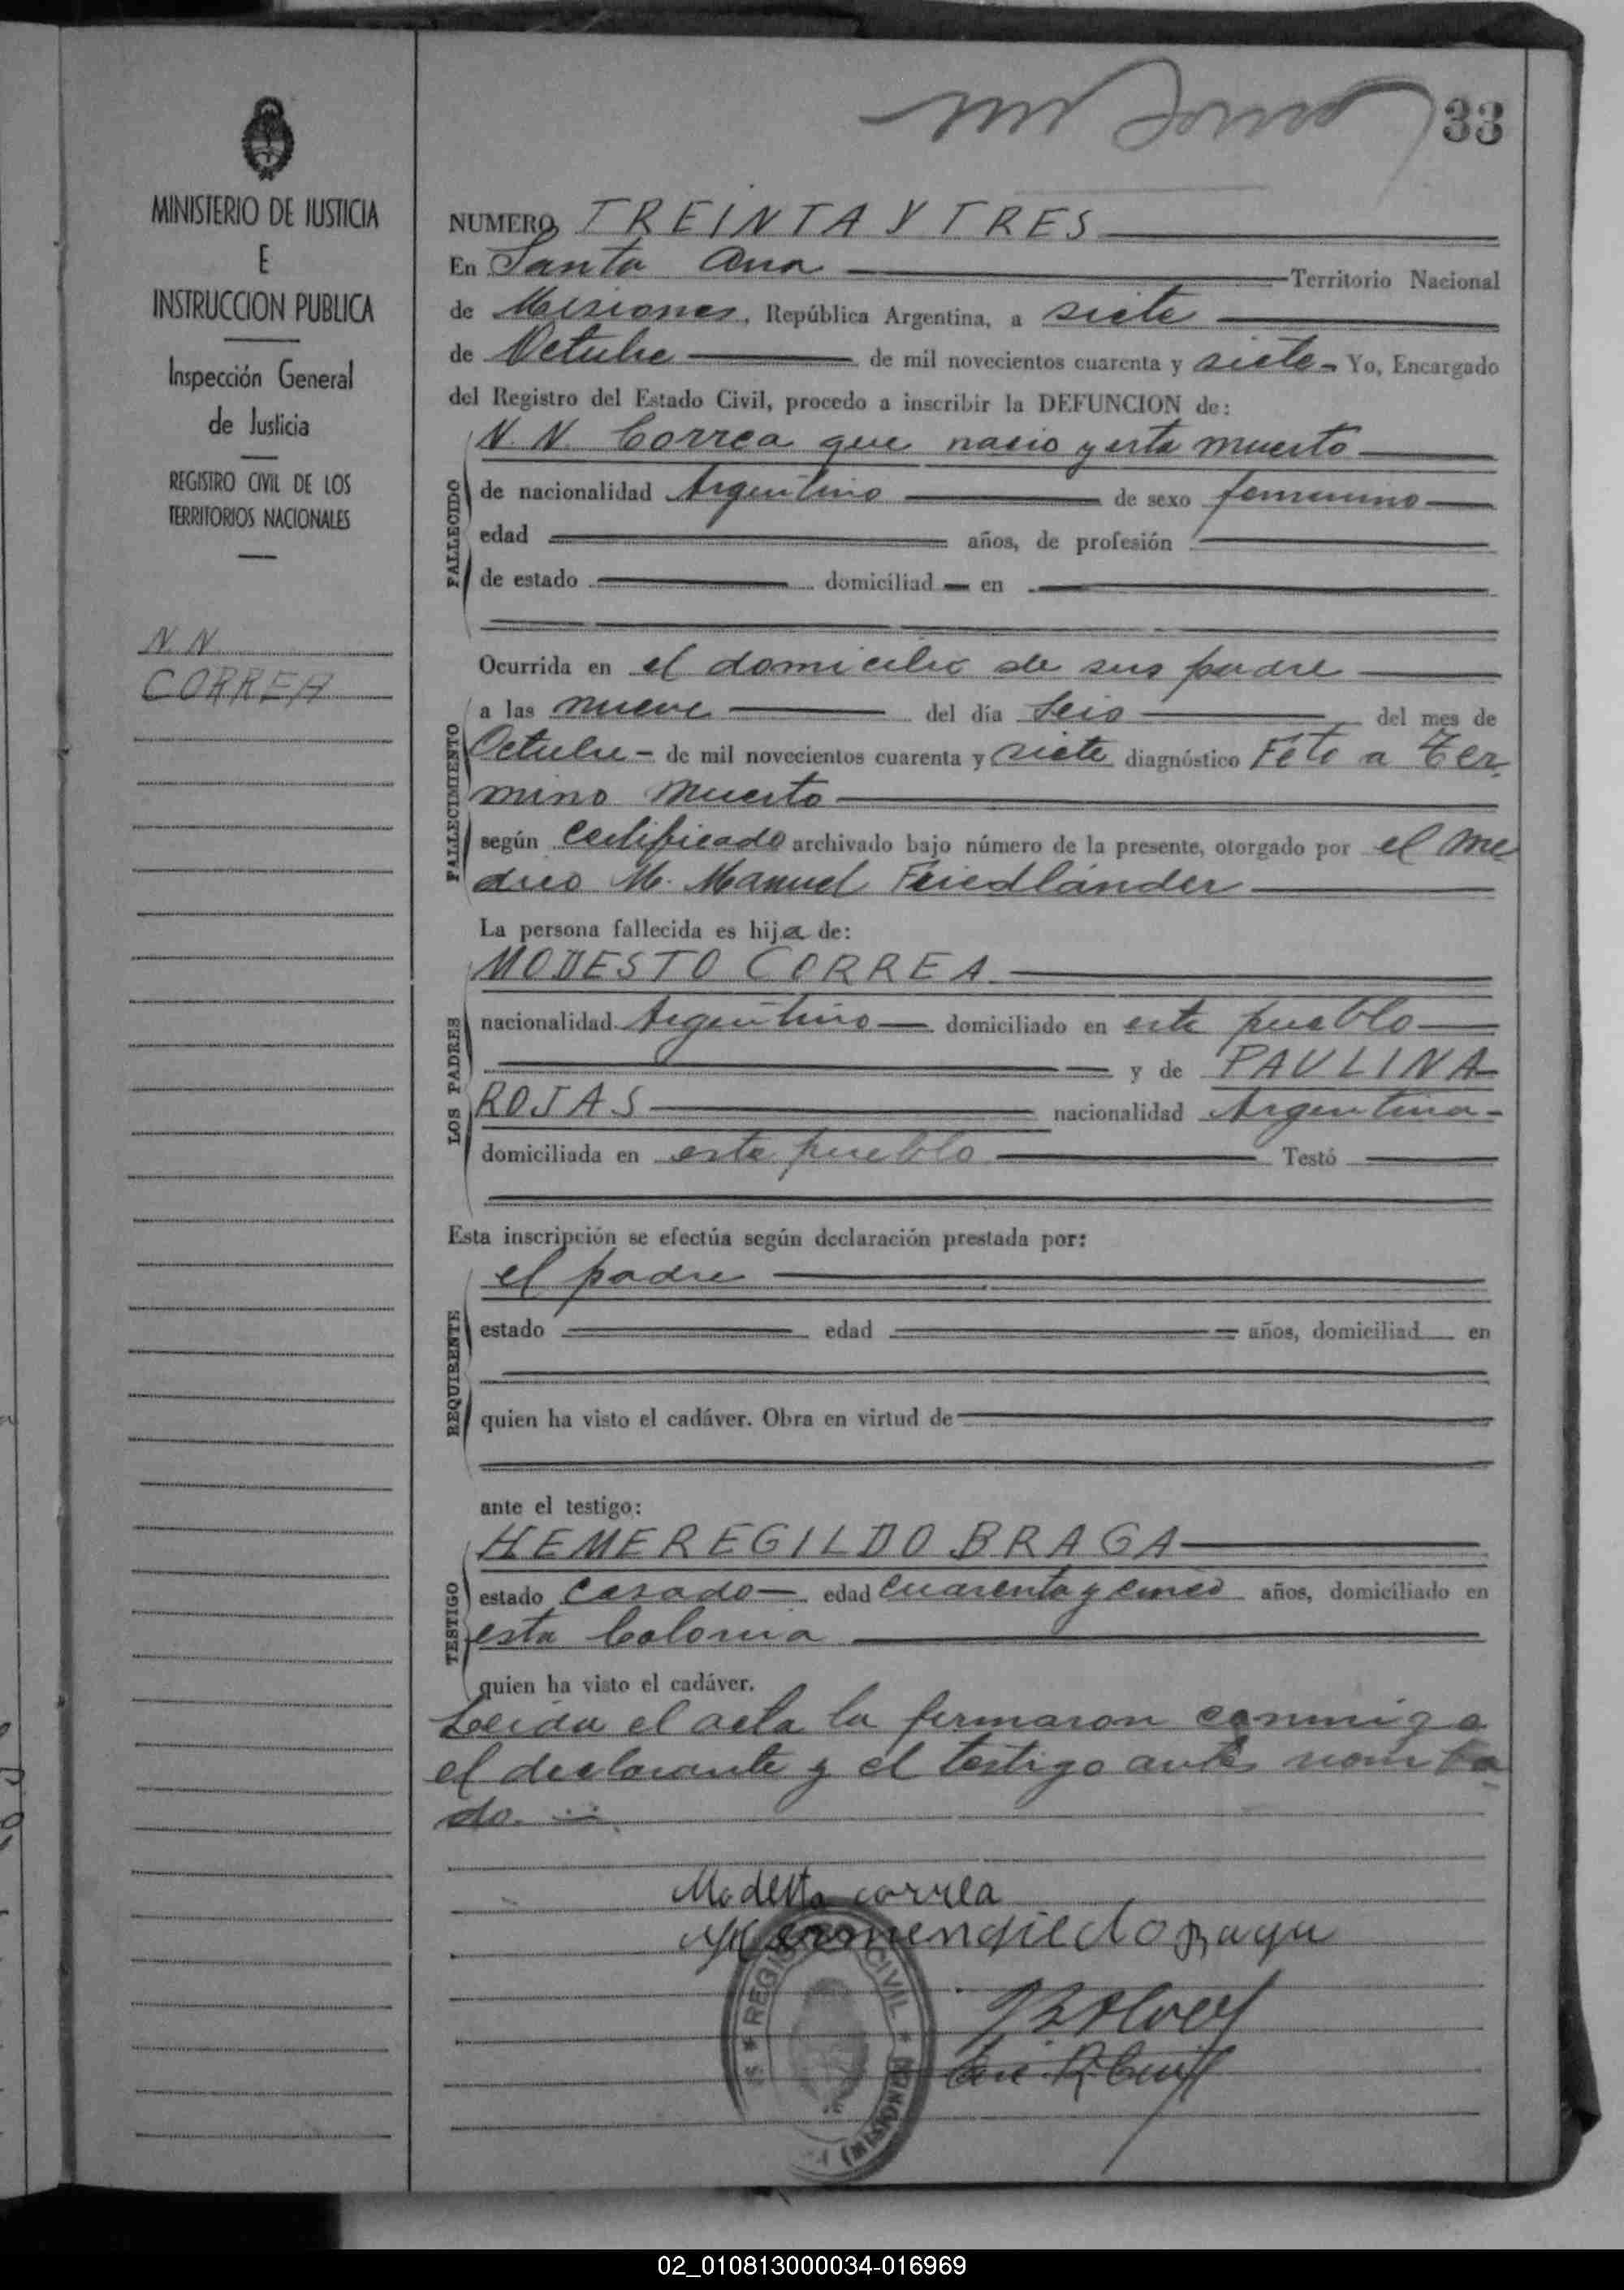 33
MINISTERIO DE JUSTICIA
E
INSTRUCCION PUBLICA
Inspección General
de Justicia
REGISTRO CIVIL DE LOS
TERRITORIOS NACIONALES
N. N.
CORREA
NUMERO TREINTA Y TRES
En Santa Ana Territorio Nacional
de Misiones, República Argentina, a siete
de Octubre de mil novecientos cuarenta y siete - Yo, Encargado
del Registro del Estado Civil, procedo a inscribir la DEFUNCION de:
N. N. Correa que nacio y esta muerto
FALLECIDO
de nacionalidad Argentino de sexo femenino
edad años, de profesión
de estado domiciliad en
Ocurrida en el domicilio de sus padre
FALLECIMIENTO
a las nueve del día seis del mes de
Octubre - de mil novecientos cuarenta y siete diagnóstico Feto a Ter-
mino muerto
según Certificado archivado bajo número de la presente, otorgado por el me
dico M. Manuel Friedlánder
La persona fallecida es hija de:
MODESTO CORREA
LOS PADRES
nacionalidad Argentino domiciliado en este pueblo
y de PAULINA
ROJAS nacionalidad Argentina -
domiciliada en este pueblo Testó
Esta inscripción se efectúa según declaración prestada por:
el padre
REQUIRENTE
estado edad años, domiciliad en
quien ha visto el cadáver. Obra en virtud de
ante el testigo:
HEMEREGILDO BRAGA
TESTIGO
estado Casado edad cuarenta y cinco años, domiciliado en
esta Colonia
quien ha visto el cadáver.
Leida el acta la firmaron conmigo
el declarante y el testigo antes nomb̶ra
do.
Modesto correa
REGISTRO CIVIL
(MISIONES)
02_010813000034-016969